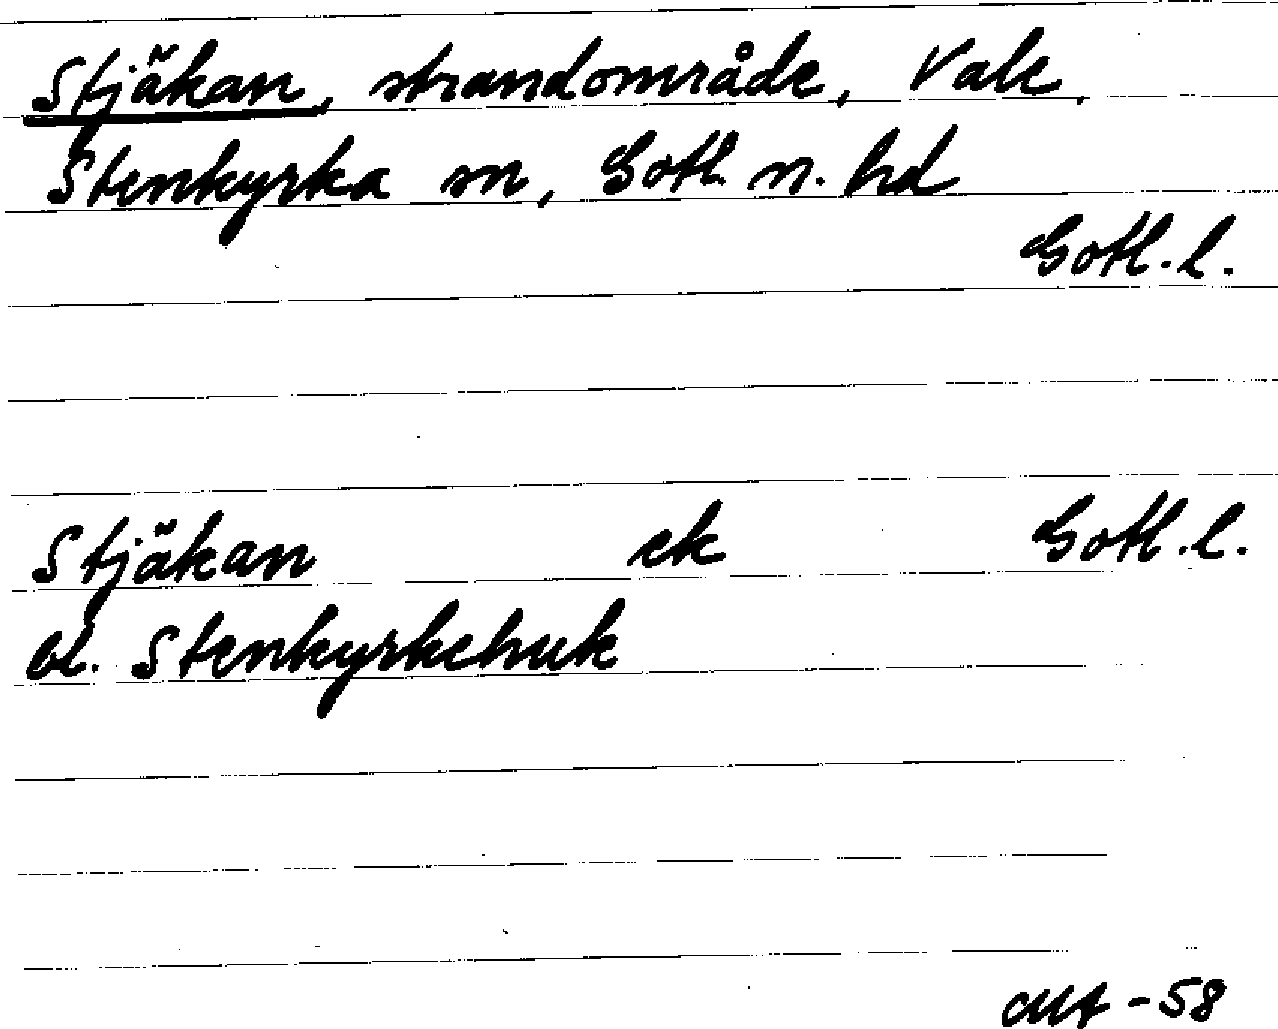 Stjäkan, strandområde, Vale,
Stenkyrka sn, Gotl. n. hd
Gotl. l.
Stjäkan ek Gotl. l.
bl. Stenkyrkehuk
-58